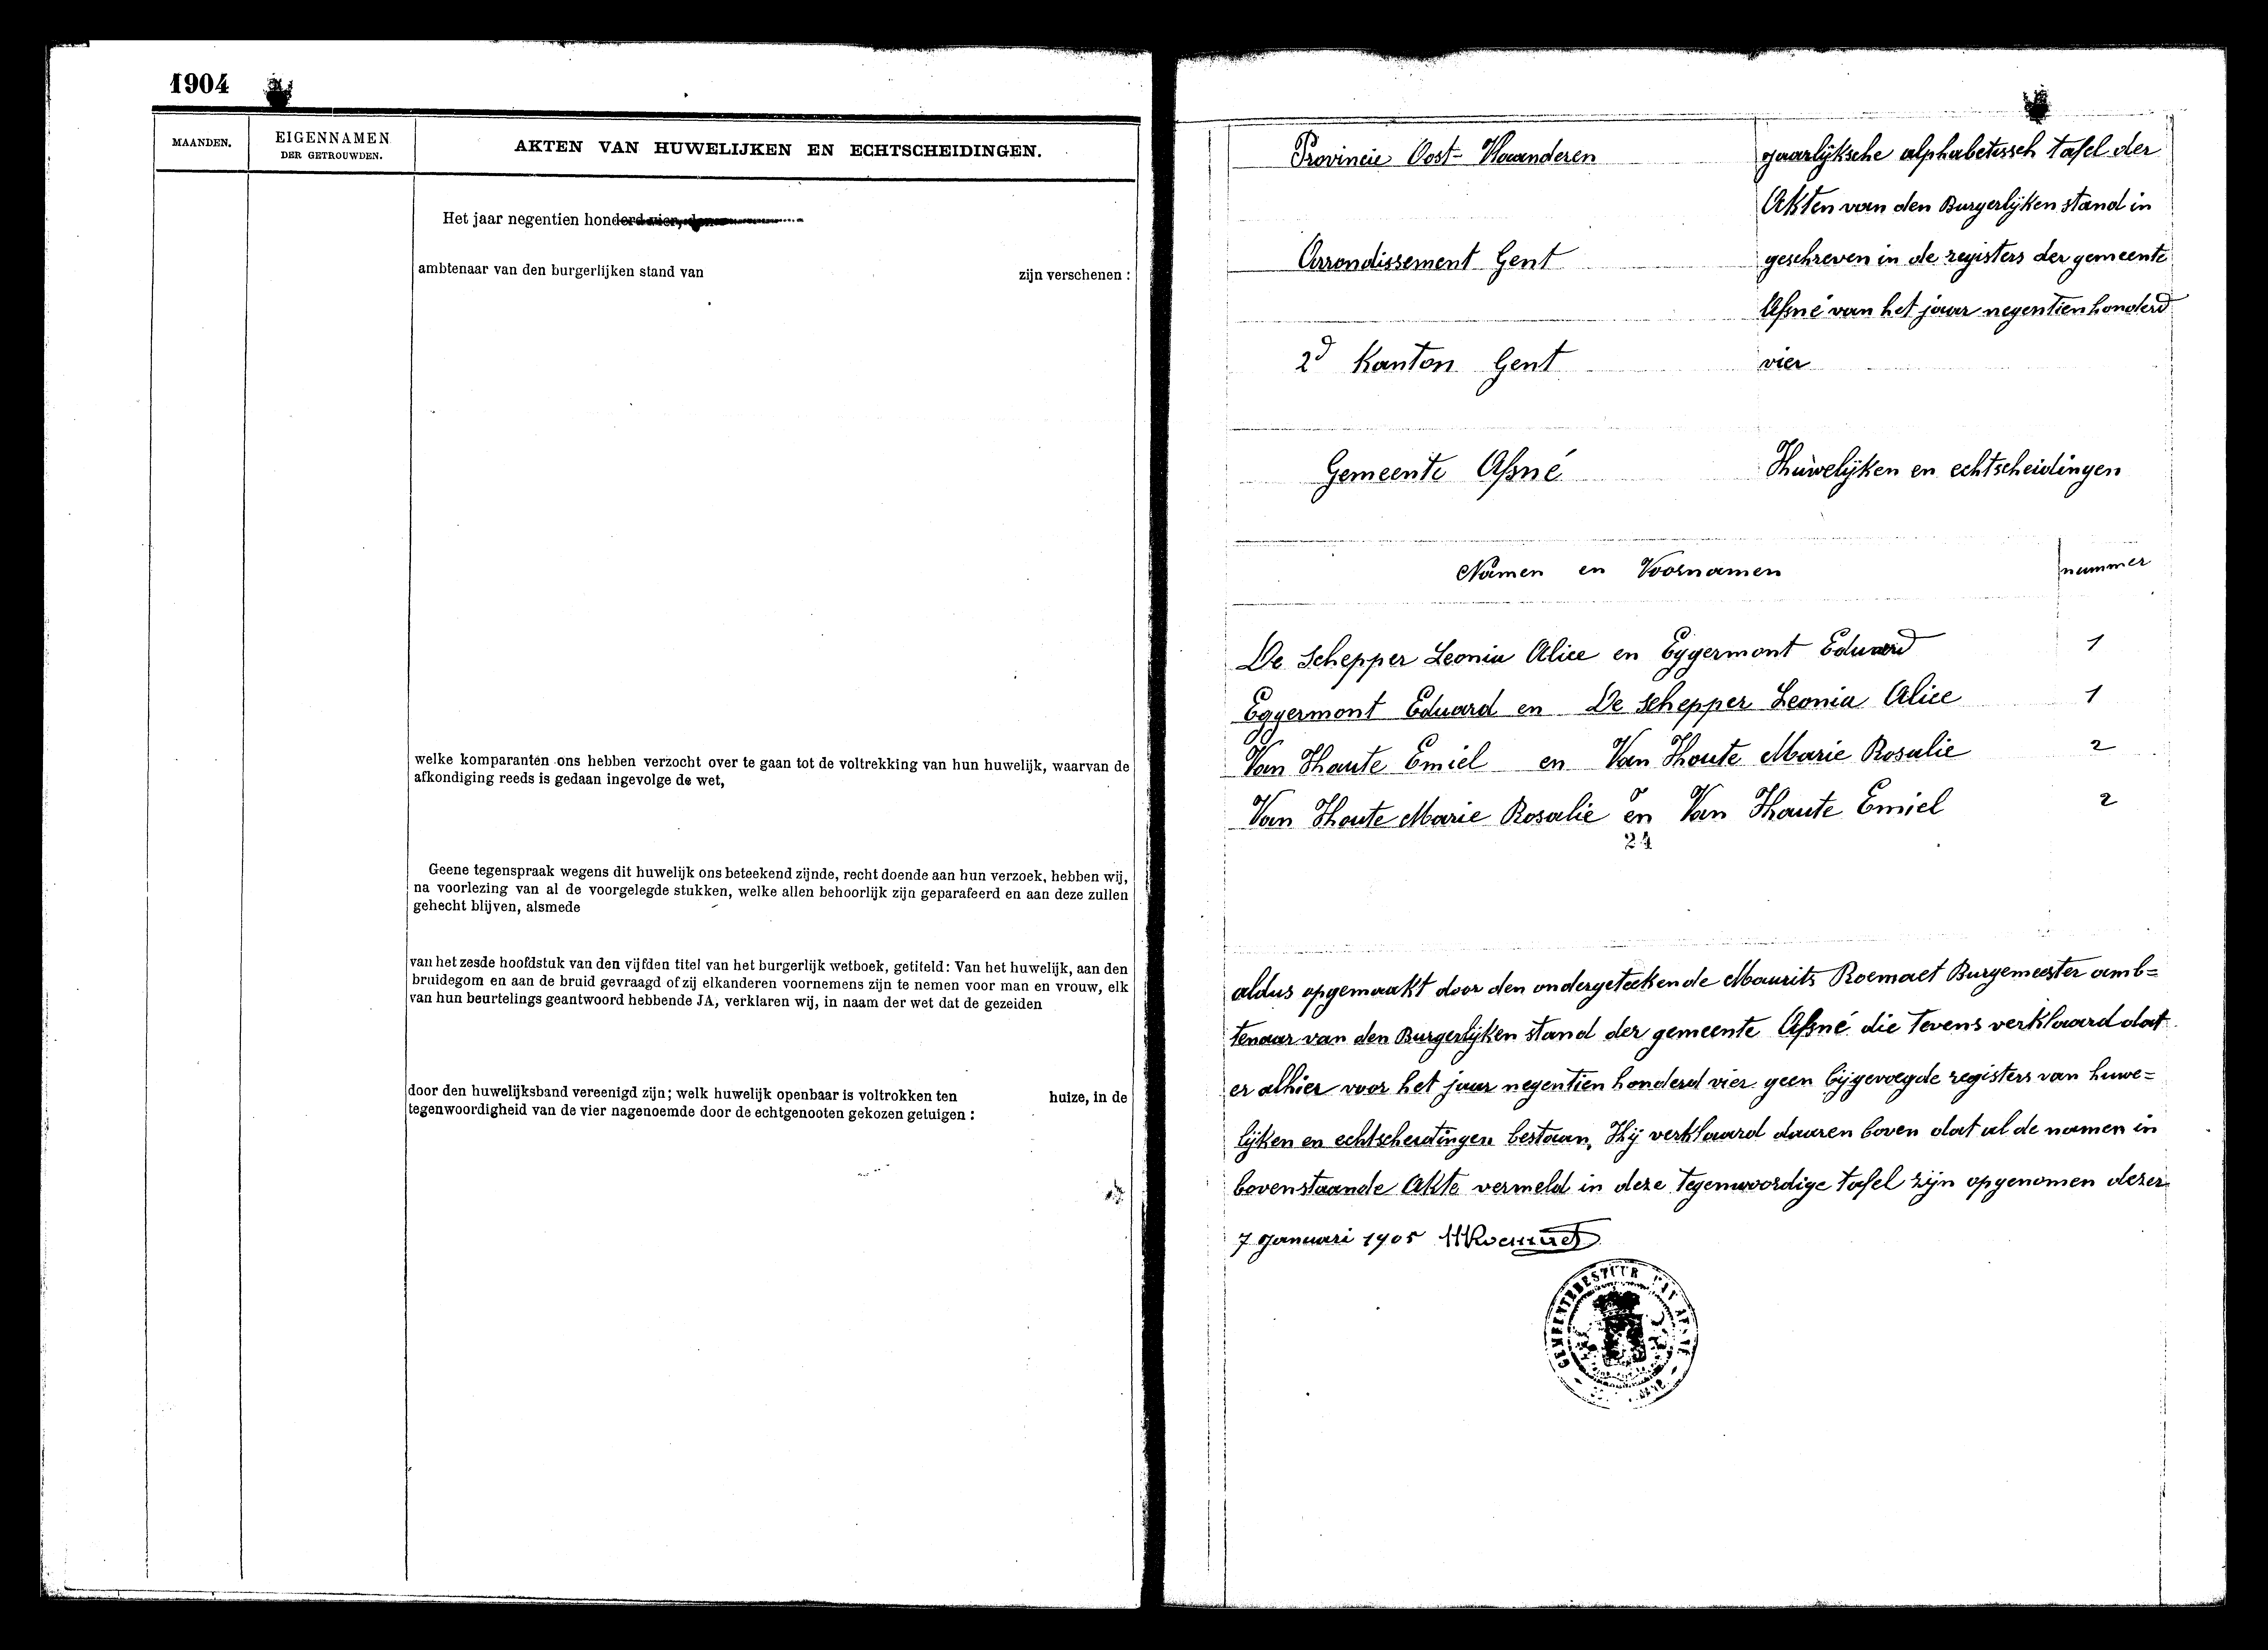 1904
MAANDEN.
EIGENNAMEN
DER GETROUWDEN.
AKTEN VAN HUWELIJKEN EN ECHTSCHEIDINGEN.
Het jaar negentien honderd vier, den
ambtenaar van den burgerlijken stand van zijn verschenen :
welke komparanten ons hebben verzocht over te gaan tot de voltrekking van hun huwelijk, waarvan de
afkondiging reeds is gedaan ingevolge de wet,
Geene tegenspraak wegens dit huwelijk ons beteekend zijnde, recht doende aan hun verzoek, hebben wij,
na voorlezing van al de voorgelegde stukken, welke allen behoorlijk zijn geparafeerd en aan deze zullen
gehecht blijven, alsmede
van het zesde hoofdstuk van den vijfden titel van het burgerlijk wetboek, getiteld: Van het huwelijk, aan den
bruidegom en aan de bruid gevraagd of zij elkanderen voornemens zijn te nemen voor man en vrouw, elk
van hun beurtelings geantwoord hebbende JA, verklaren wij, in naam der wet dat de gezeiden
door den huwelijksband vereenigd zijn; welk huwelijk openbaar is voltrokken ten huize, in de
tegenwoordigheid van de vier nagenoemde door de echtgenooten gekozen getuigen :
Provincie Oost-Vlaanderen
Arrondissement Gent
2d Kanton Gent
Gemeente Afsné
Jaarlijksche alphabetissch tafel der
Akten van den Burgerlijken stand in
geschreven in de registers der gemeente
Afsné van het jaar negentien honderd
vier
Huwelijken en echtscheidingen
Namen en Voornamen nummer
De Schepper Leonia Alice en Eggermont Eduard 1
Eggermont Eduard en De Schepper Leonia Alice 1
Van Haute Emiel en Van Houte Marie Rosalie 2
Van Houte Marie Rosalie en Van Haute Emiel 2
24
aldus opgemaakt door den ondergeteekende Maurits Roemaet Burgemeester amb=
tenaar van den Burgerlijken stand der gemeente Afsné die tevens verklaard dat
er alhier voor het jaar negentien honderd vier geen bijgevoegde registers van huwe=
lijken en echtscheidingen bestaan, Hij verklaard daaren boven dat al de namen in
bovenstaande Akte vermeld in deze tegenwoordige tafel zijn opgenomen dezer
7 Januari 1905 MRoemaet
GEMEENTEBESTUUR VAN AFSNÉ